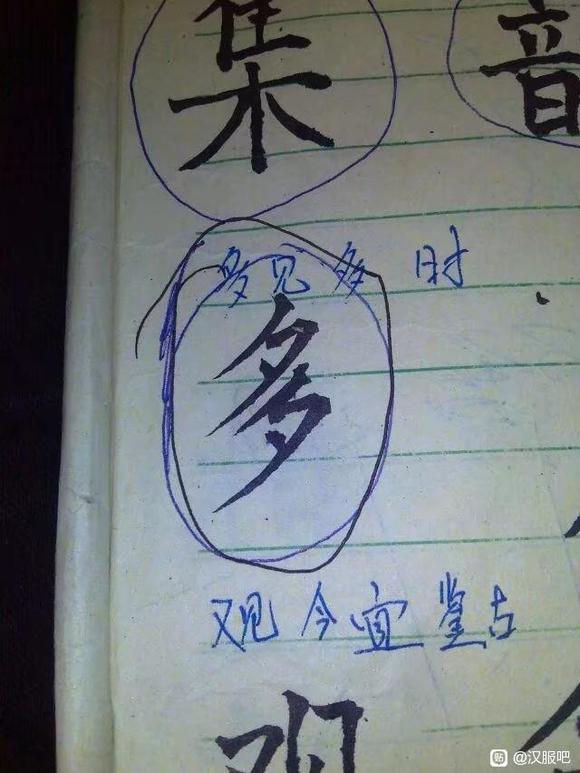 集 音
多见多时
多
观今宜鉴古
观
@汉服吧